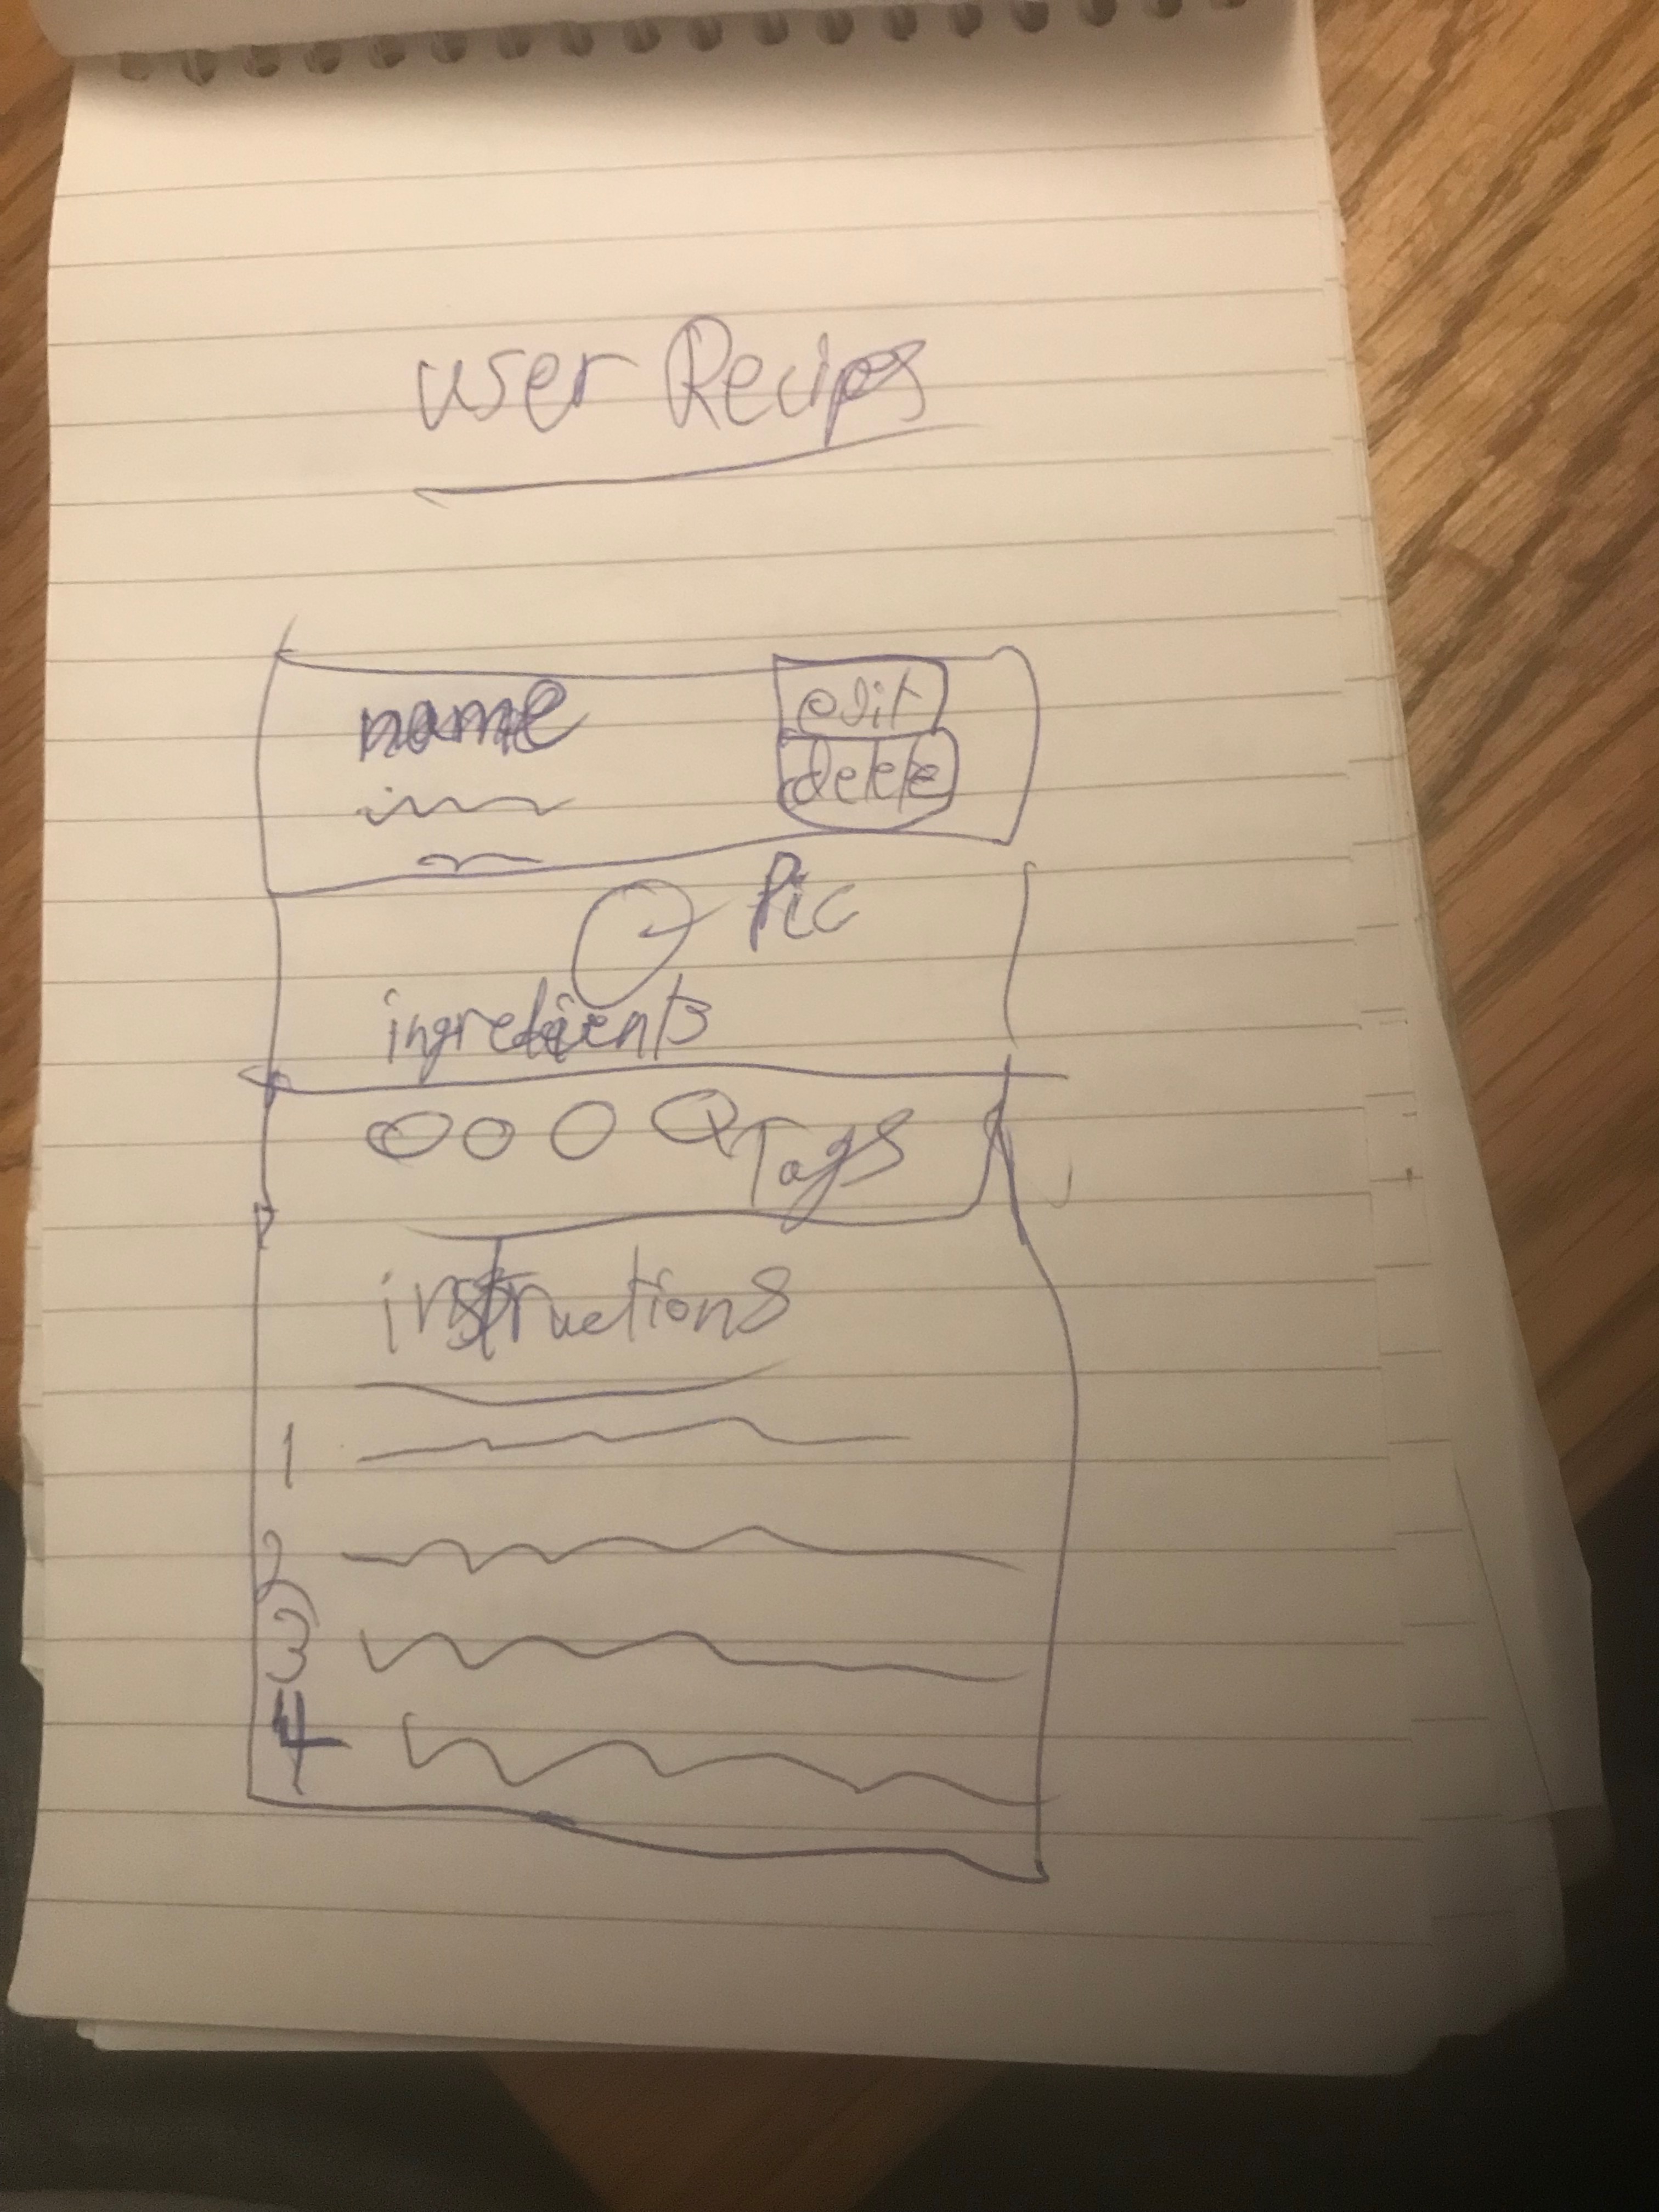 user Recips
name
edit
delete
Pic
ingredients
Tags
instructions
1
2
3
4